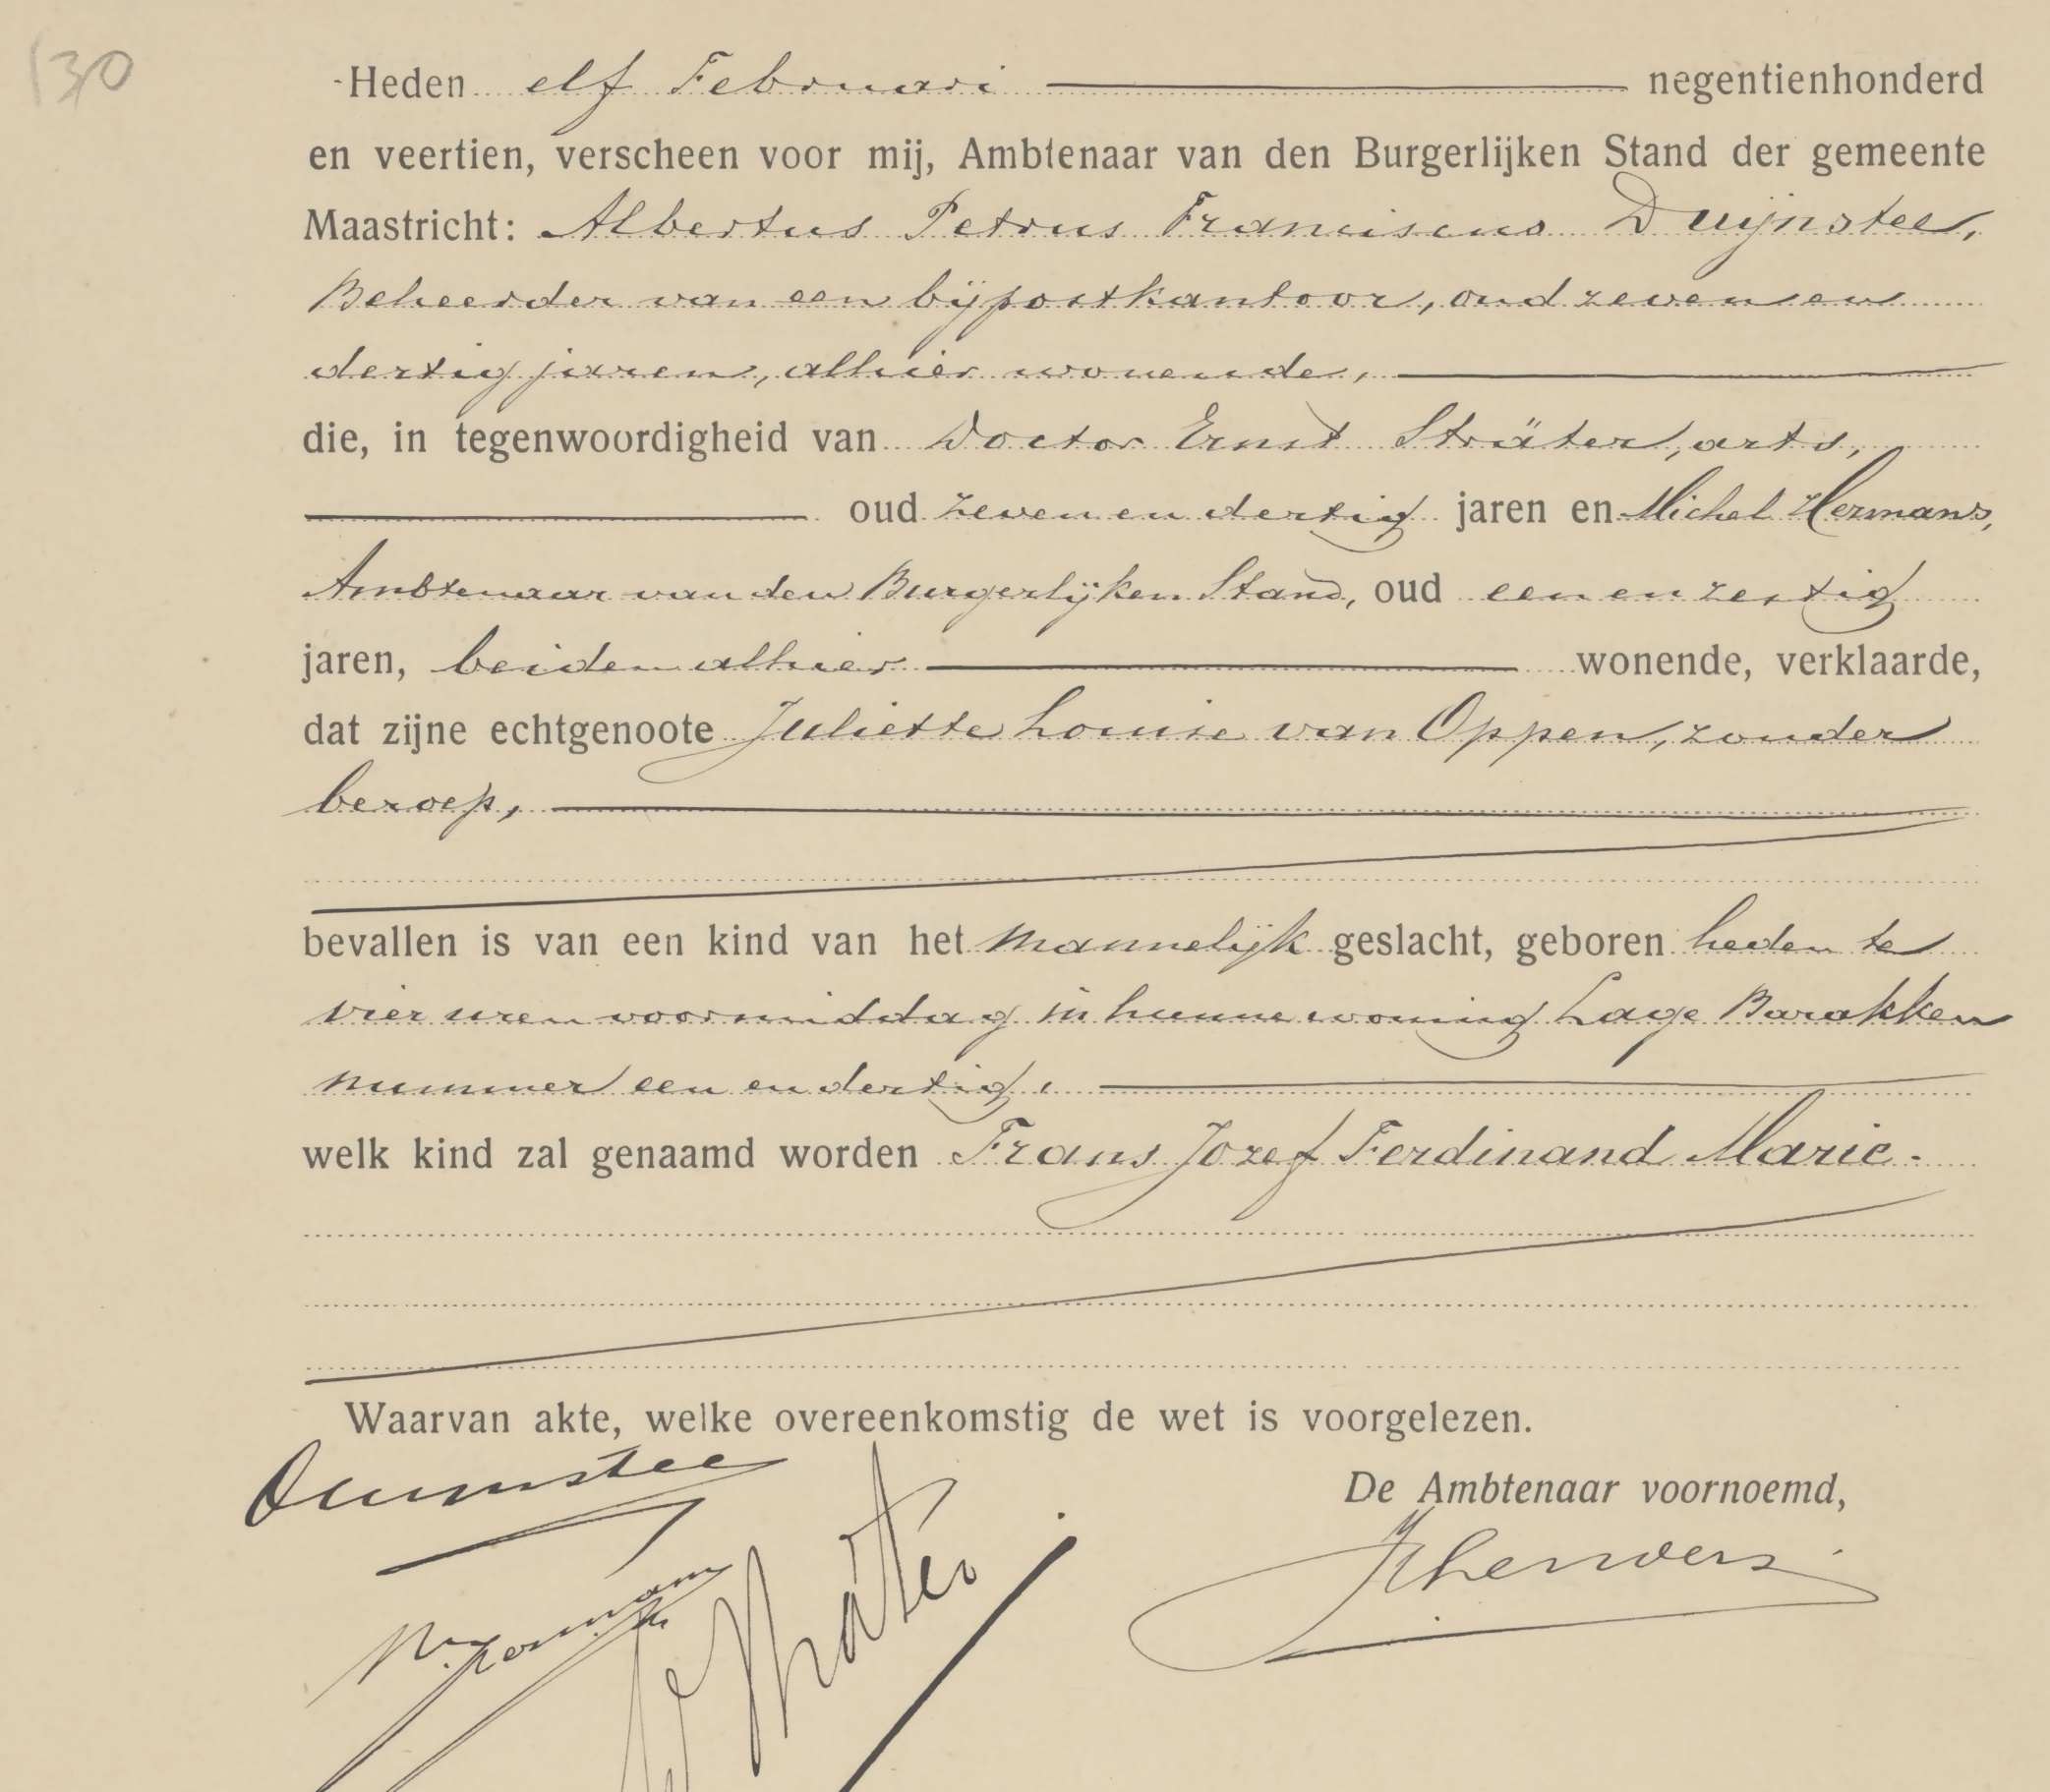 130
Heden elf Februari negentienhonderd
en veertien, verscheen voor mij, Ambtenaar van den Burgerlijken Stand der gemeente
Maastricht: Albertus Petrus Franciscus Duijnstee,
Beheerder van een bijpostkantoor, oud zeven en
dertig jaren, alhier wonende,
die, in tegenwoordigheid van Doctor Ernst Sträter, arts,
oud zeven en dertig jaren en Michel Hermans,
Ambtenaar van den Burgerlijken Stand, oud een en zestig
jaren, beiden alhier wonende, verklaarde,
dat zijne echtgenoote Juliette Louise van Oppen, zonder
beroep,
bevallen is van een kind van het mannelijk geslacht, geboren heden te
vier uren voormiddag in hunne woning Lage Barakken
nummer een en dertig,
welk kind zal genaamd worden Frans Jozef Ferdinand Marie.
Waarvan akte, welke overeenkomstig de wet is voorgelezen.
Duijnstee
De Ambtenaar voornoemd,
M. Hermans
Sträter